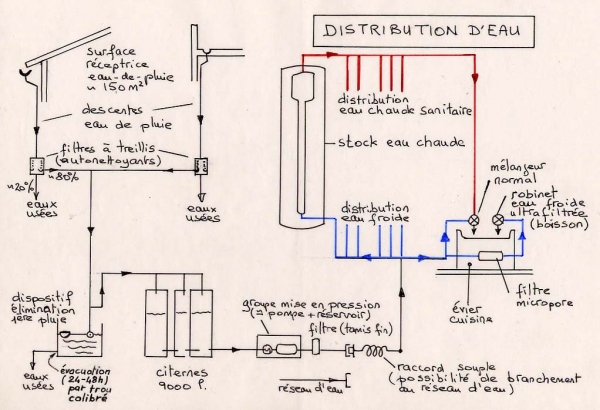 DISTRIBUTION D'EAU
surface
réceptrice
eau-de-pluie
± 150 m²
descentes
eau de pluie
filtres à treillis
(autonettoyants)
±20%
±80%
eaux
usées
eaux
usées
distribution
eau chaude sanitaire
stock eau chaude
distribution
eau froide
mélangeur
normal
robinet
eau froide
ultrafiltrée
(boisson)
filtre
micropore
évier
cuisine
dispositif
élimination
1ère pluie
eaux
usées
évacuation
(24-48h)
par trou
calibré
citernes
9000 l.
groupe mise en pression
(= pompe + réservoir)
filtre (tamis fin)
réseau d'eau
raccord souple
(possibilité de branchement
au réseau d'eau)